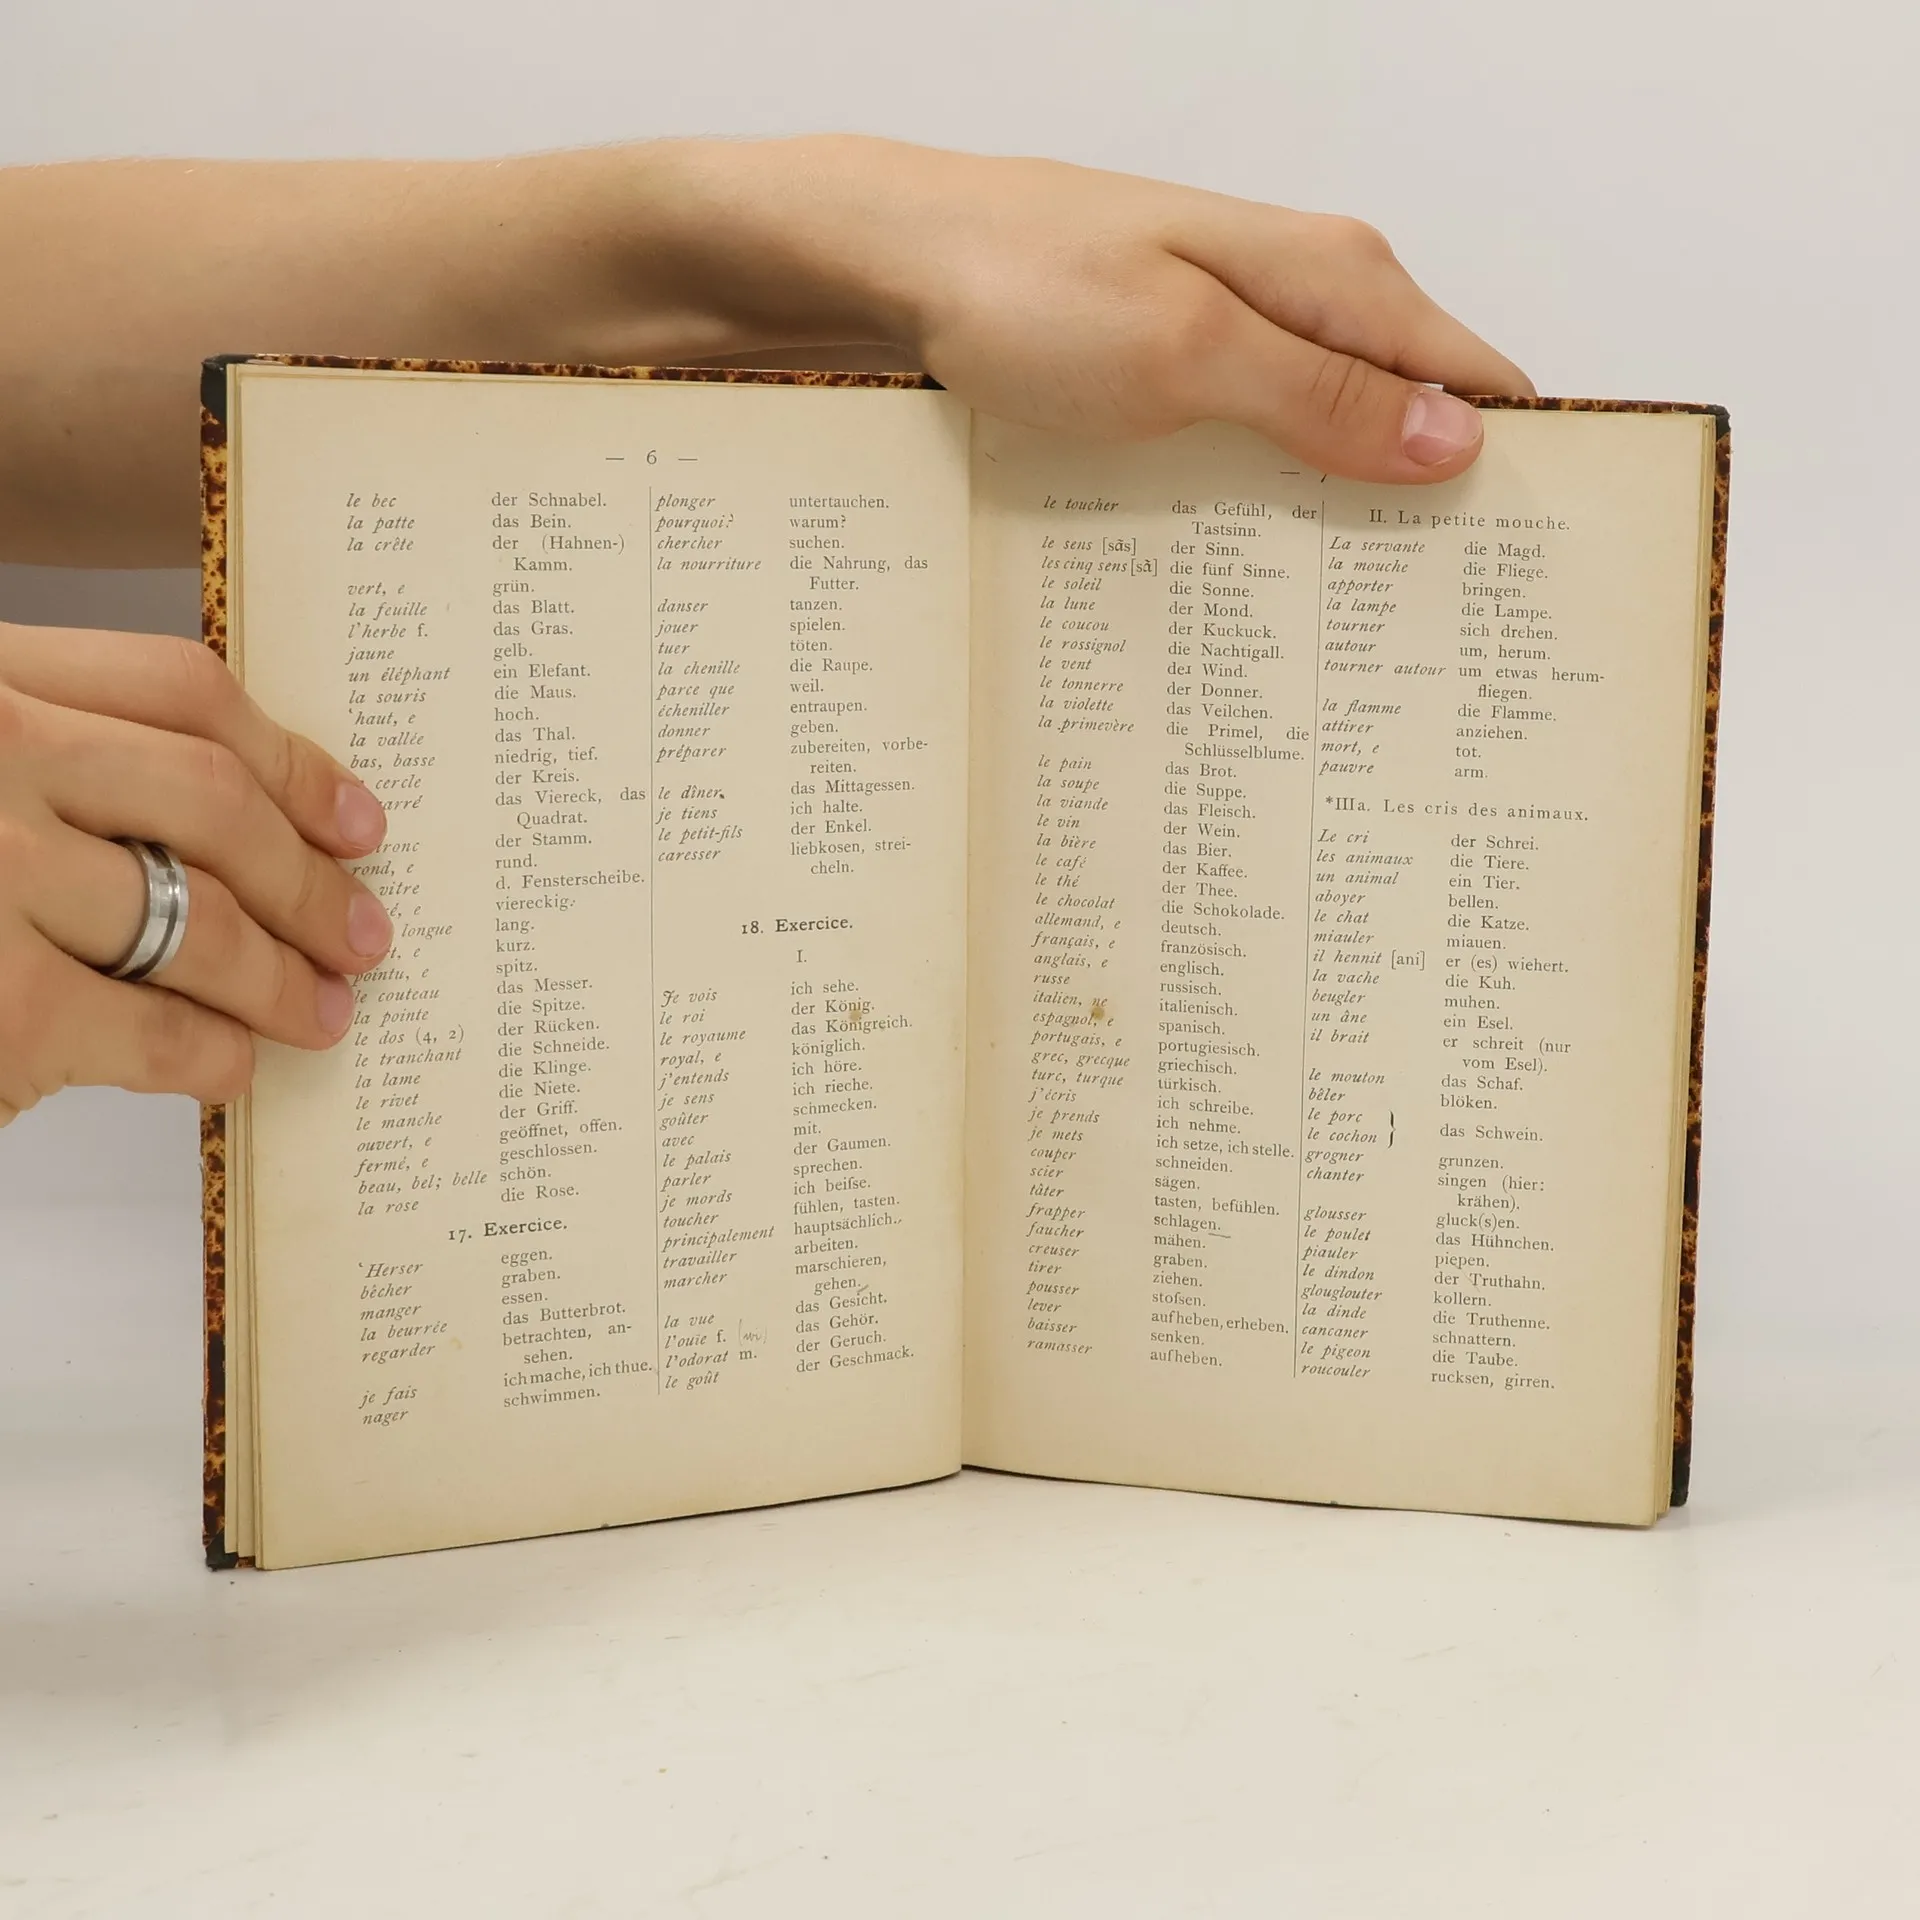 — 6 —
le bec der Schnabel.
la patte das Bein.
la crête der (Hahnen-)
Kamm.
vert, e grün.
la feuille das Blatt.
l'herbe f. das Gras.
jaune gelb.
un éléphant ein Elefant.
la souris die Maus.
'haut, e hoch.
la vallée das Thal.
bas, basse niedrig, tief.
cercle der Kreis.
das Viereck, das
Quadrat.
der Stamm.
rond, e rund.
vitre d. Fensterscheibe.
viereckig.
longue lang.
kurz.
pointu, e spitz.
le couteau das Messer.
la pointe die Spitze.
le dos (4, 2) der Rücken.
le tranchant die Schneide.
la lame die Klinge.
le rivet die Niete.
le manche der Griff.
ouvert, e geöffnet, offen.
fermé, e geschlossen.
beau, bel; belle schön.
la rose die Rose.
17. Exercice.
'Herser eggen.
bêcher graben.
manger essen.
la beurrée das Butterbrot.
regarder betrachten, an-
sehen.
je fais ich mache, ich thue.
nager schwimmen.
plonger untertauchen.
pourquoi? warum?
chercher suchen.
la nourriture die Nahrung, das
Futter.
danser tanzen.
jouer spielen.
tuer töten.
la chenille die Raupe.
parce que weil.
écheniller entraupen.
donner geben.
préparer zubereiten, vorbe-
reiten.
le dîner das Mittagessen.
je tiens ich halte.
le petit-fils der Enkel.
caresser liebkosen, strei-
cheln.
18. Exercice.
I.
Je vois ich sehe.
le roi der König.
le royaume das Königreich.
royal, e königlich.
j'entends ich höre.
je sens ich rieche.
goûter schmecken.
avec mit.
le palais der Gaumen.
parler sprechen.
je mords ich beiſse.
toucher fühlen, tasten.
principalement hauptsächlich.
travailler arbeiten.
marcher marschieren,
gehen.
la vue das Gesicht.
l'ouïe f. das Gehör.
l'odorat m. der Geruch.
le goût der Geschmack.
le toucher das Gefühl, der
Tastsinn.
le sens [sãs] der Sinn.
les cinq sens [sã] die fünf Sinne.
le soleil die Sonne.
la lune der Mond.
le coucou der Kuckuck.
le rossignol die Nachtigall.
le vent der Wind.
le tonnerre der Donner.
la violette das Veilchen.
la primevère die Primel, die
Schlüsselblume.
le pain das Brot.
la soupe die Suppe.
la viande das Fleisch.
le vin der Wein.
la bière das Bier.
le café der Kaffee.
le thé der Thee.
le chocolat die Schokolade.
allemand, e deutsch.
français, e französisch.
anglais, e englisch.
russe russisch.
italien, ne italienisch.
espagnol, e spanisch.
portugais, e portugiesisch.
grec, grecque griechisch.
turc, turque türkisch.
j'écris ich schreibe.
je prends ich nehme.
je mets ich setze, ich stelle.
couper schneiden.
scier sägen.
tâter tasten, befühlen.
frapper schlagen.
faucher mähen.
creuser graben.
tirer ziehen.
pousser stoſsen.
lever aufheben, erheben.
baisser senken.
ramasser aufheben.
II. La petite mouche.
La servante die Magd.
la mouche die Fliege.
apporter bringen.
la lampe die Lampe.
tourner sich drehen.
autour um, herum.
tourner autour um etwas herum-
fliegen.
la flamme die Flamme.
attirer anziehen.
mort, e tot.
pauvre arm.
*IIIa. Les cris des animaux.
Le cri der Schrei.
les animaux die Tiere.
un animal ein Tier.
aboyer bellen.
le chat die Katze.
miauler miauen.
il hennit [ani] er (es) wiehert.
la vache die Kuh.
beugler muhen.
un âne ein Esel.
il brait er schreit (nur
vom Esel).
le mouton das Schaf.
bêler blöken.
le porc
le cochon } das Schwein.
grogner grunzen.
chanter singen (hier:
krähen).
glousser gluck(s)en.
le poulet das Hühnchen.
piauler piepen.
le dindon der Truthahn.
glouglouter kollern.
la dinde die Truthenne.
cancaner schnattern.
le pigeon die Taube.
roucouler rucksen, girren.